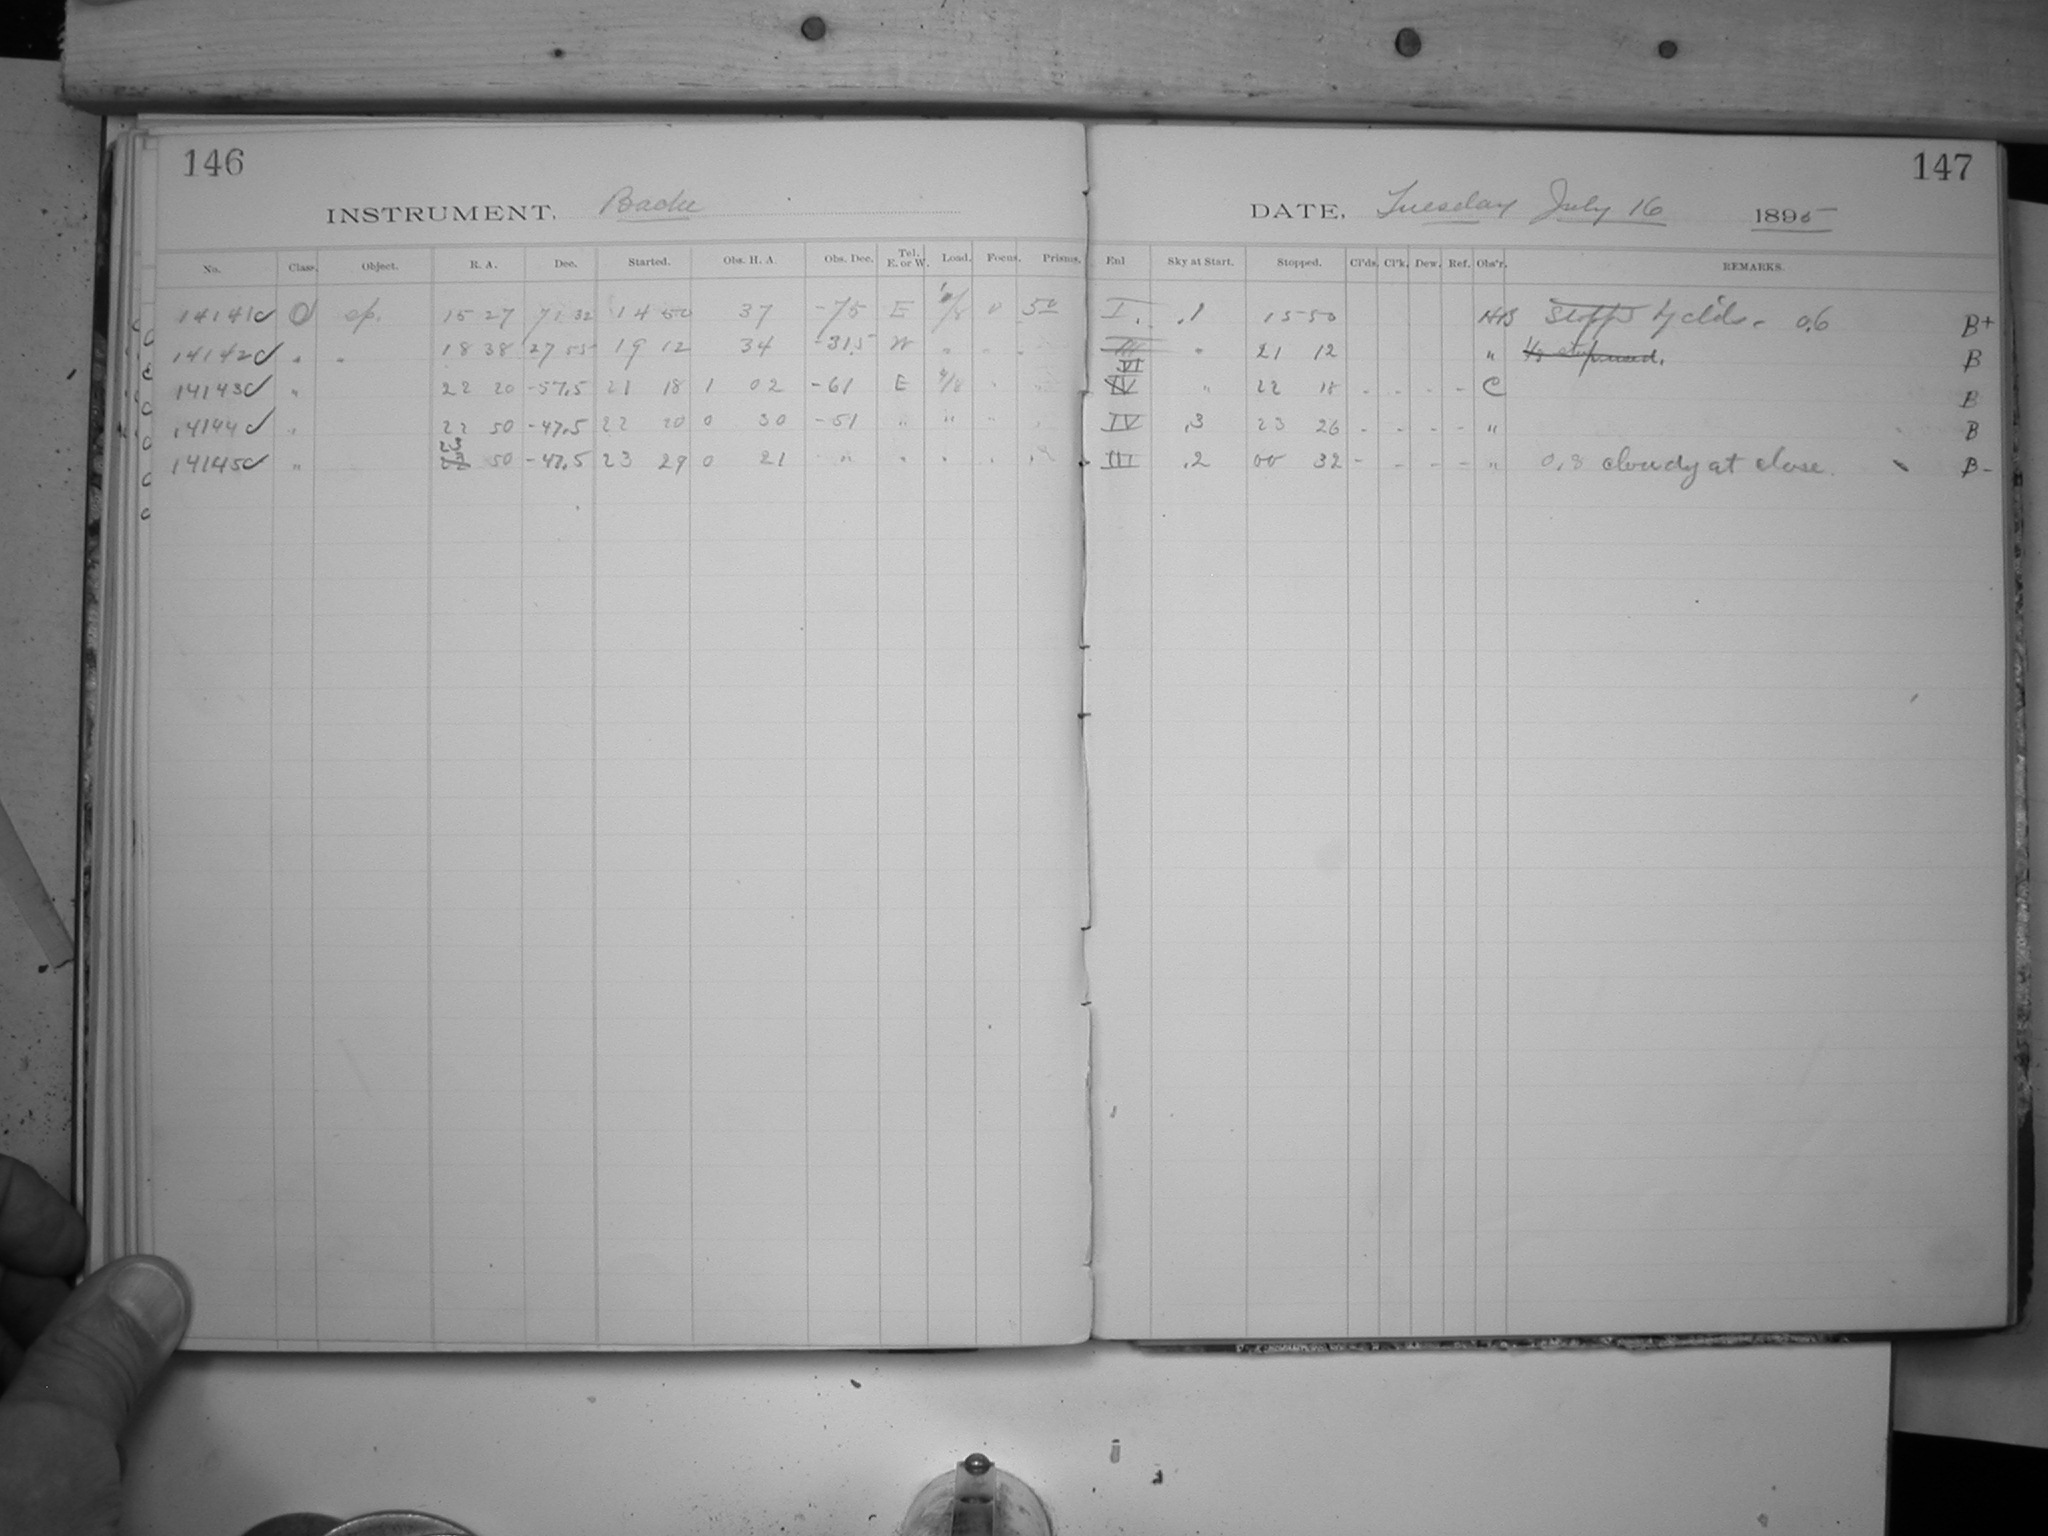 146
INSTRUMENT. Bache
No. Class. Object. R. A. Dec. Started. Obs. H. A. Obs. Dec. Tel. E. or W. Load. Focus. Prisms.
14141 O sp. 15 27 71 32 14 50 37 -75 E 0
14142 " " 18 38 27 55 19 12 34 -31.5 W " " "
14143 " 22 20 -57.5 21 18 1 02 -61 E " "
14144 " 22 50 -47.5 22 20 0 30 -51 " " " "
14145 " 23 50 -47.5 23 29 0 21 " " " "
147
DATE. Tuesday July 16 1895
Enl Sky at Start. Stopped. Cl'ds. Cl'k. Dew. Ref. Obs'r. REMARKS.
I. .1 15 50 0.6 B+
VI " 21 12 " B
IV " 22 18 - - - - C B
IV .3 23 26 - - - - " B
III .2 00 32 - - - - " 0.8 cloudy at close. B-